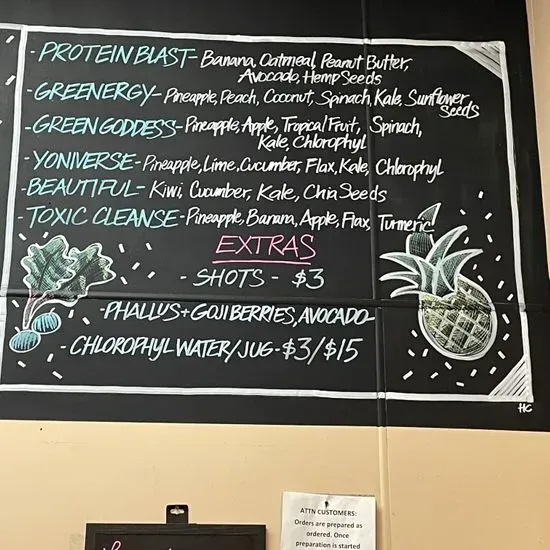 - PROTEIN BLAST - Banana, Oatmeal, Peanut Butter,
Avocado, Hemp Seeds
- GREENERGY - Pineapple, Peach, Coconut, Spinach, Kale, Sunflower
Seeds
- GREEN GODDESS - Pineapple, Apple, Tropical Fruit, Spinach,
Kale, Chlorophyl
- YONIVERSE - Pineapple, Lime, Cucumber, Flax, Kale, Chlorophyl
- BEAUTIFUL - Kiwi, Cucumber, Kale, Chia Seeds
- TOXIC CLEANSE - Pineapple, Banana, Apple, Flax, Turmeric
EXTRAS
- SHOTS - $3
- PHALLUS + GOJI BERRIES, AVOCADO -
- CHLOROPHYL WATER/JUG - $3/$15
HC
ATTN CUSTOMERS:
Orders are prepared as
ordered. Once
preparation is started